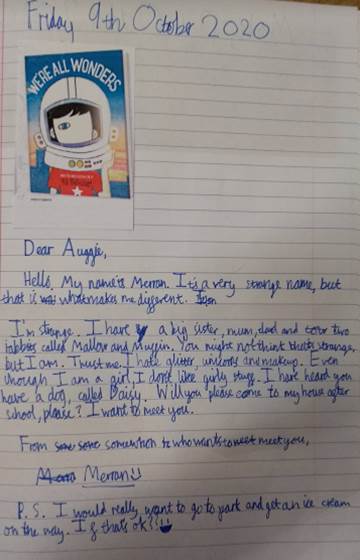 Friday 9th October 2020
WE'RE ALL WONDERS
Dear Auggie,
Hello, My name is Merran. It's a very strange name, but
that is what makes me different.
I'm strange. I have a big sister, mum, dad and two
rabbits called Mallow and Muggin. You might not think that's strange,
but I am. Trust me. I hate glitter, unicorns and makeup. Even
though I am a girl, I don't like girly stuff. I have heard you
have a dog, called Daisy. Will you please come to my house after
school, please? I want to meet you.
From somewhon who wants to meet you,
Merran
P.S. I would really want to go to park and get an ice cream
on the way. If that's ok?